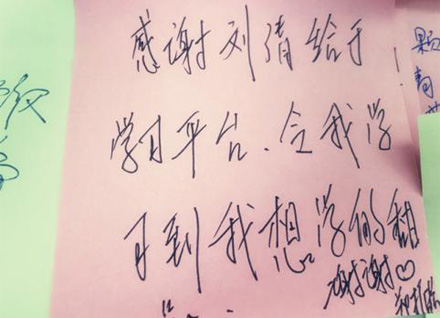 感谢刘清给于
学习平台、令我学
习到我想学的
谢谢♡